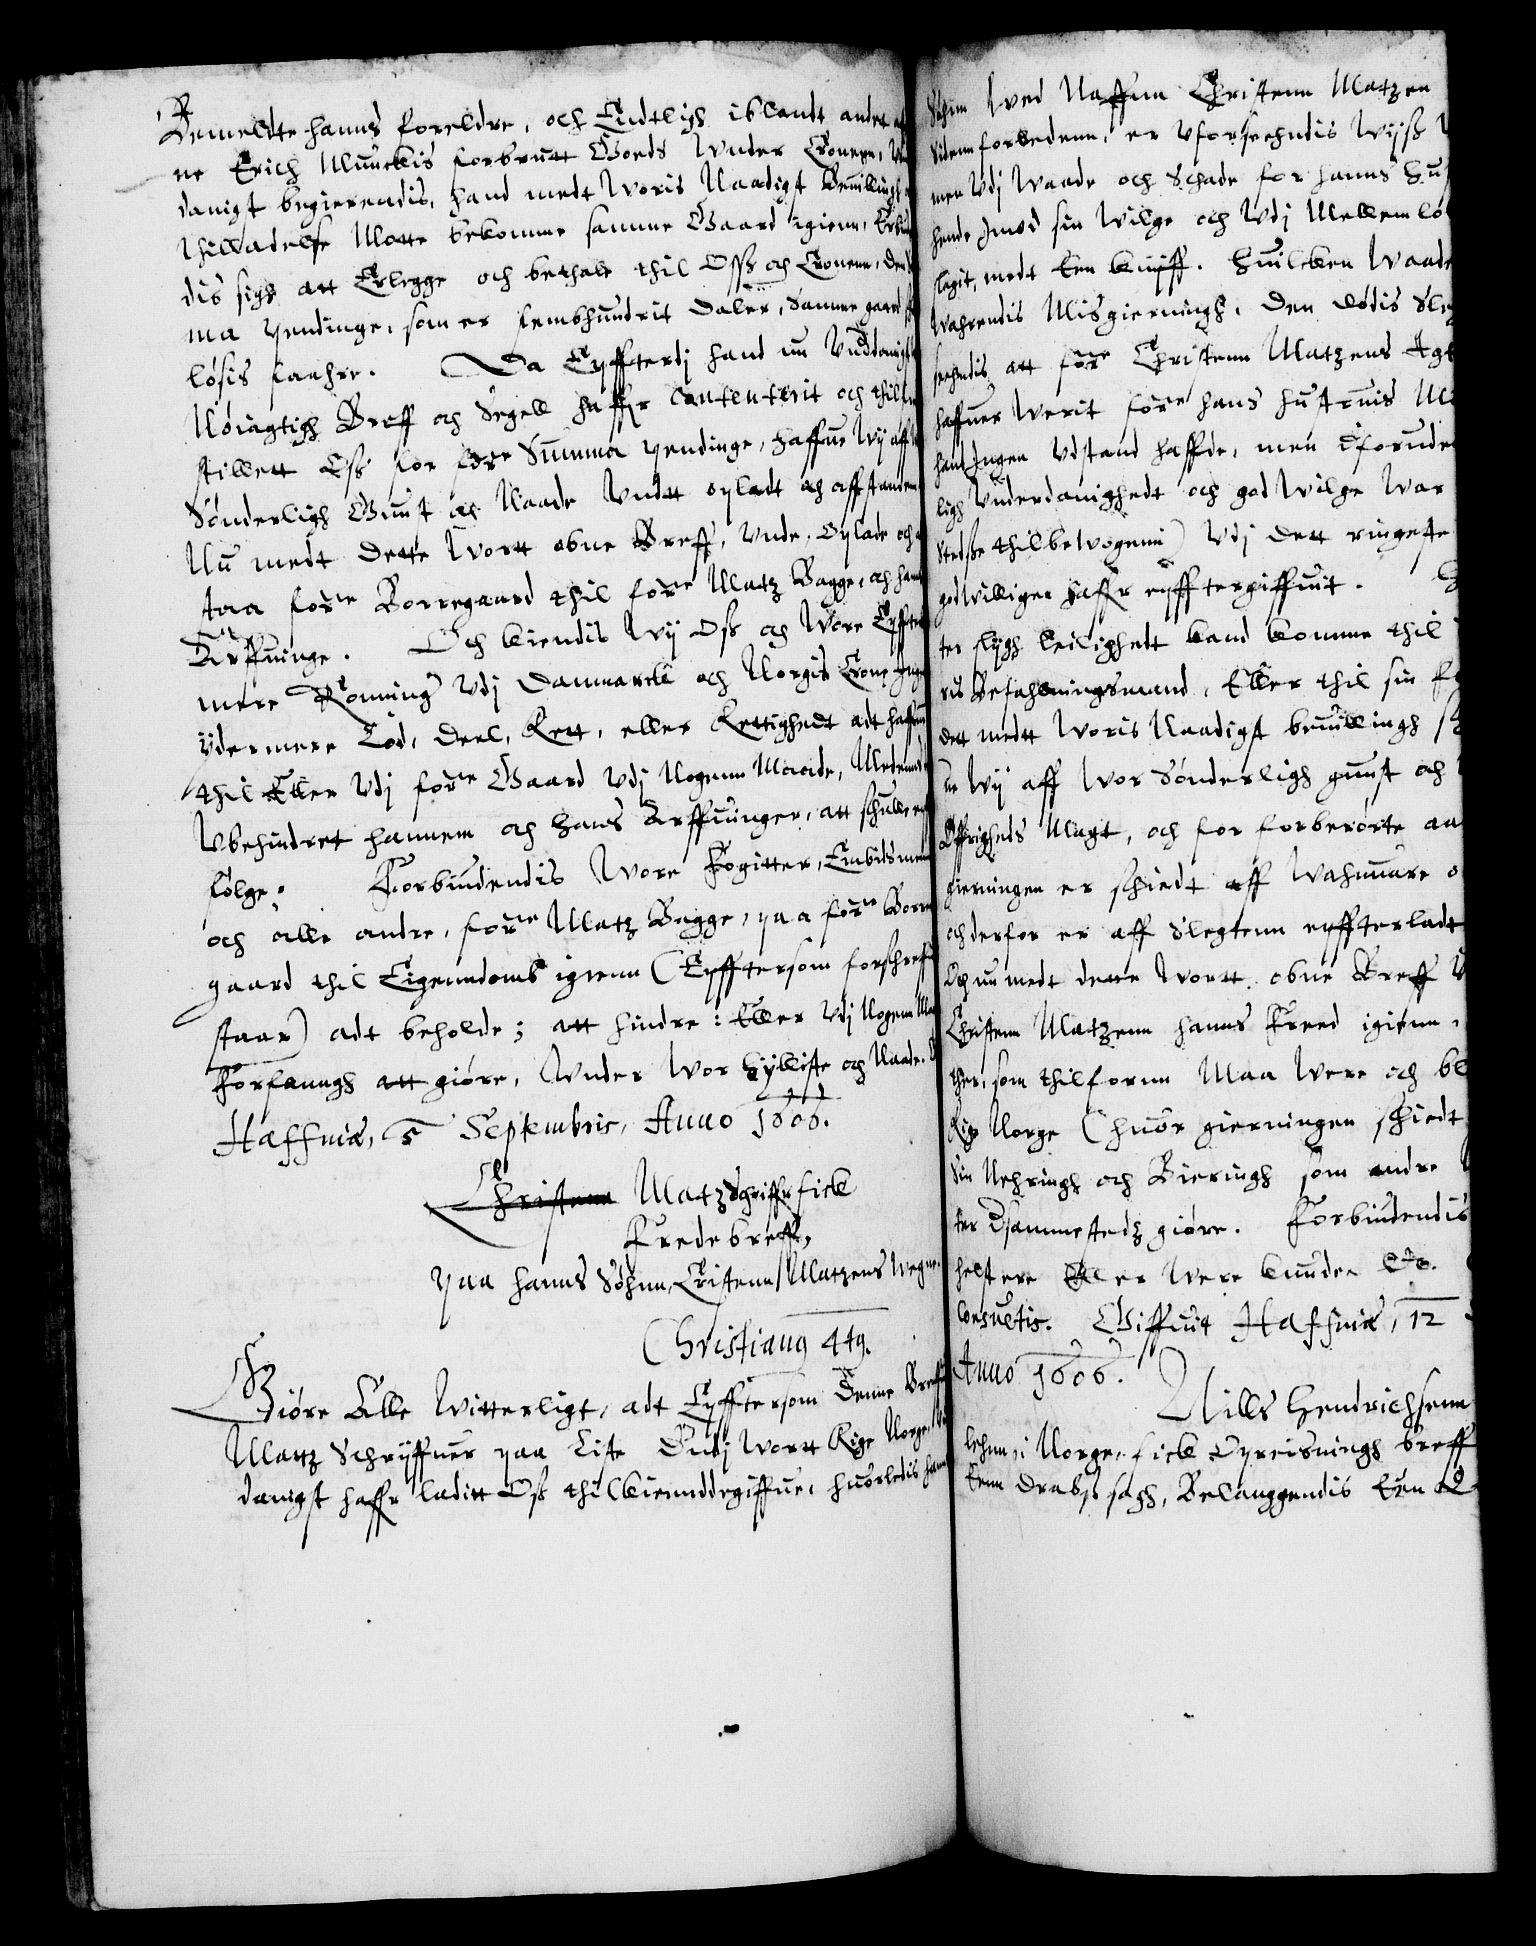 Bemeldte hanns foreldre, och Endtligh iblandt andet
ne Erich Munckis forbrutt Goeds Wnder Cronen,
danigt begierendis, hand medt Woris Naadigst Beuillingh
thilladelse Motte bekomme samme Gaard igienn,
dis sigh att Erlegge och bethale thil Oss och Cronenn,
ma pendinge, som er fembhundrit Daler, Samme gaard
løsis faahre. Da Eyffterdj hand nu Vnddanigst
Nøiagtigh Breff och Segell haffr Contenterit och
stillett Oss for forne Summa pendinge, haffue Wij aff
Sønderligh Gunst och Naade Vndtt opladt och affstanden
Nu medt dette Wortt obne Breff, Vnde, Oplade och
staa forne Borregaard thil forne Matz Bagge, och hans
Arffuinge. Och kiendis Wij Oss och Wore Eyffter
mere Konning Vdj Danmarck och Norgis Crone Ingen
ydermere Lod, deel, Rett, eller Rettighedt adt haffue
thil Eller Vdj forne Gaard Vdj Nogenn Maade,
Vbehindret hannem och Hans Arffuinger, att schulle
følge: Forbiudendis Wore Fogitter, Embidsmend
och alle andre, forne Matz Bagge, paa forne Borre
gaard thil Eigenndomb igienn (Eyfftersom forschreffuit
staar) adt beholde; att hindre: Eller Vdj Nogenn
Forfanngh att giøre, Wnder Wor Hylliste och Naade.
Haffniæ, 5 Septembris, Anno 1606.
Christenn Matz Schriffr fick
Frede breff,
paa hanns Søhnn, Cristenn Matzens Wegne.
Christianus 4tus.
Giøre Alle Witterligt, adt Eyfftersom Denne Breff
Matz Schryffuer paa Liste Vdj Wortt Rige Norge
danigst haffr laditt Oss thilkiennddegiffue, huorledis hans
Søhnn Wed Naffnn Christenn Matzen
forledenn, er Vforseehndis Wijss
men Vdj Waade och Schade for hanns
hende Imod sin Wilge och Vdj Mellemlø
slagit, medt Een kniff. Huilcken Waade
Wahrendis Misgierningh, Den dødis
seehndis att forne Christenn Matzens
haffuer Werit forne hans hustruis
hand Ingen Vdstand haffde, men Iforuden
ligh Vnderdanighedt och god Wilge War
Stedsse thilbewogenn) Vdj dett ringeste
godwilligen haffr eyfftergiffuit.
ter sligh leilighedt kand komme thil
ris Befahlningsmand, Eller thil sin
dett medtt Woris Naadigst beuillingh
ue Wij aff Wor Sønderligh gunst och
Øffrigheds Magt, och for forberørte
gierningen er schiedt aff Wahnuare
och derfor er aff Slegtenn eyffterladt
Och nu medt dette Wortt obne Breff
Christenn Matzenn hanns Freed igienn,
ther, som thilfornn Maa Were och
Rige Norge (huor gierningen schiedt
Sin Nehringh och Bieringh som andre
ter Dsammestedz giøre. Forbiudendis
helst ere Eller Were kunde Etc.
Consuetis. Giffuit Haffniæ, 12
Anno 1606.
Nills Hendrichsenn
lehnn i Norge, fick Opreisningh breff
Eenn Drabs sagh, Belanggendis Een